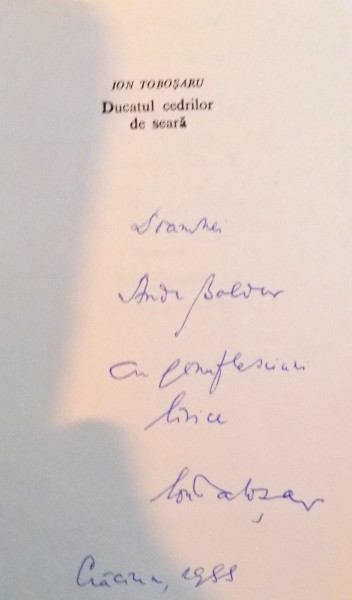 ION TOBOȘARU
Ducatul cedrilor
de seară
Doamnei
Anda Boldur
cu genuflexiuni
lirice
Ion Toboșaru
Crăciun, 1988